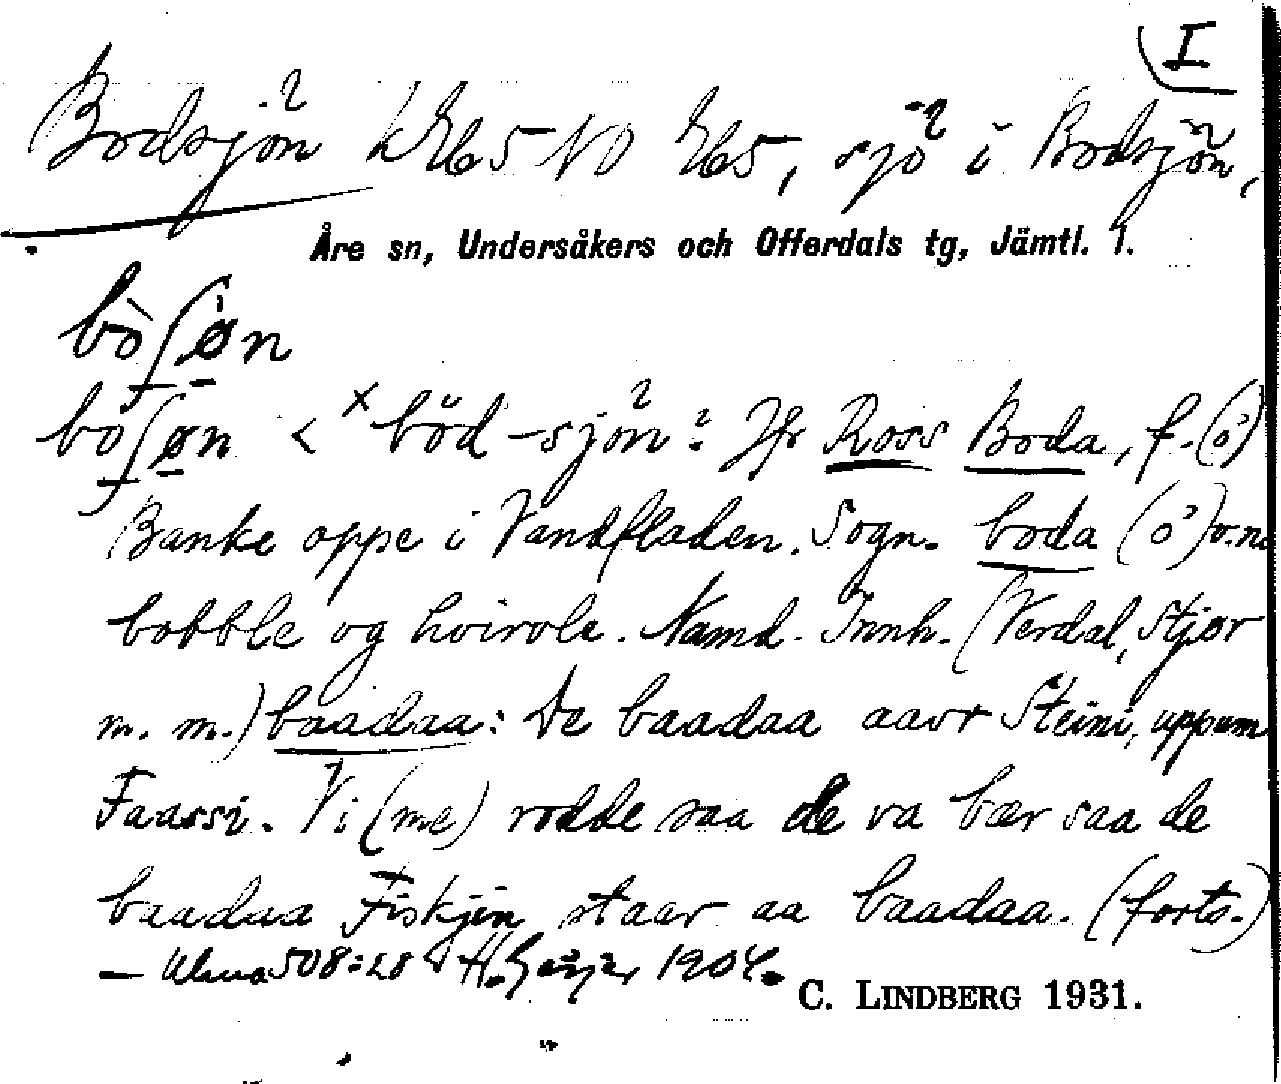 I
Bodsjön k Eb5 NO Eb5, sjö i Bodsjön,
Åre sn, Undersåkers och Offerdals tg, Jämtl. l.
bòʃøn
boʃøn < ˣböd-sjön? Jfr Ross Boda, f. (o')
Banke oppe i Vandfladen. Sogn. boda (o') v.n.
bobble og hvirvle. Namd. Innh. (Verdal, Stjør
m. m.) baadaa: De baadaa aavr Steini, uppum
Faassi. Vi (me) rodde saa de va bær saa de
baadaa Fiskjen staar aa baadaa. (forts.)
— Ulma 508:28 H. Geijer 1904.
C. LINDBERG 1931.